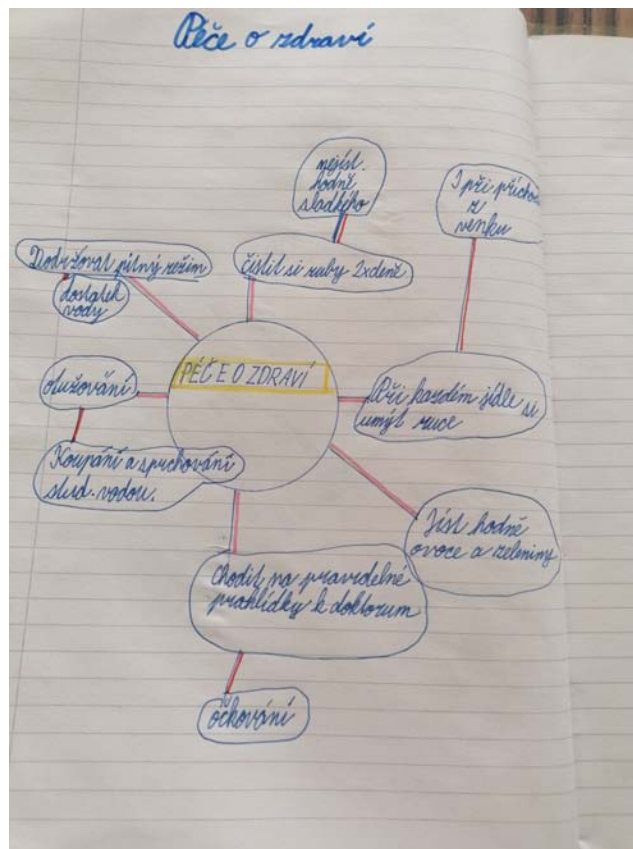 Péče o zdraví
nejíst.
hodně
sladkého
I při přícho
z
venku
Dodržovat pitný režim
dostatek
vody
čistit si zuby 2xdeně
PÉČE O ZDRAVÍ
otužování
Při každém jídle si
umýt ruce
Koupání a sprchování
stud. vodou.
Jíst hodně
ovoce a zeleniny
Chodit na pravidelné
prohlídky k doktorum
očkování